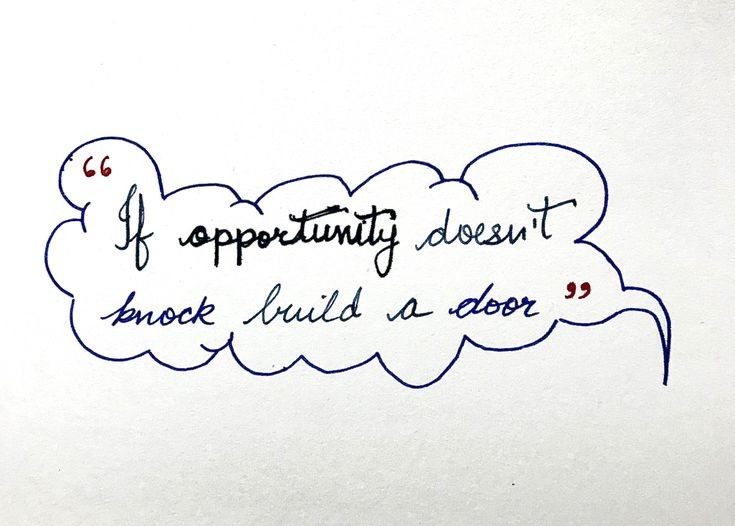 “If opportunity doesn't
knock build a door”